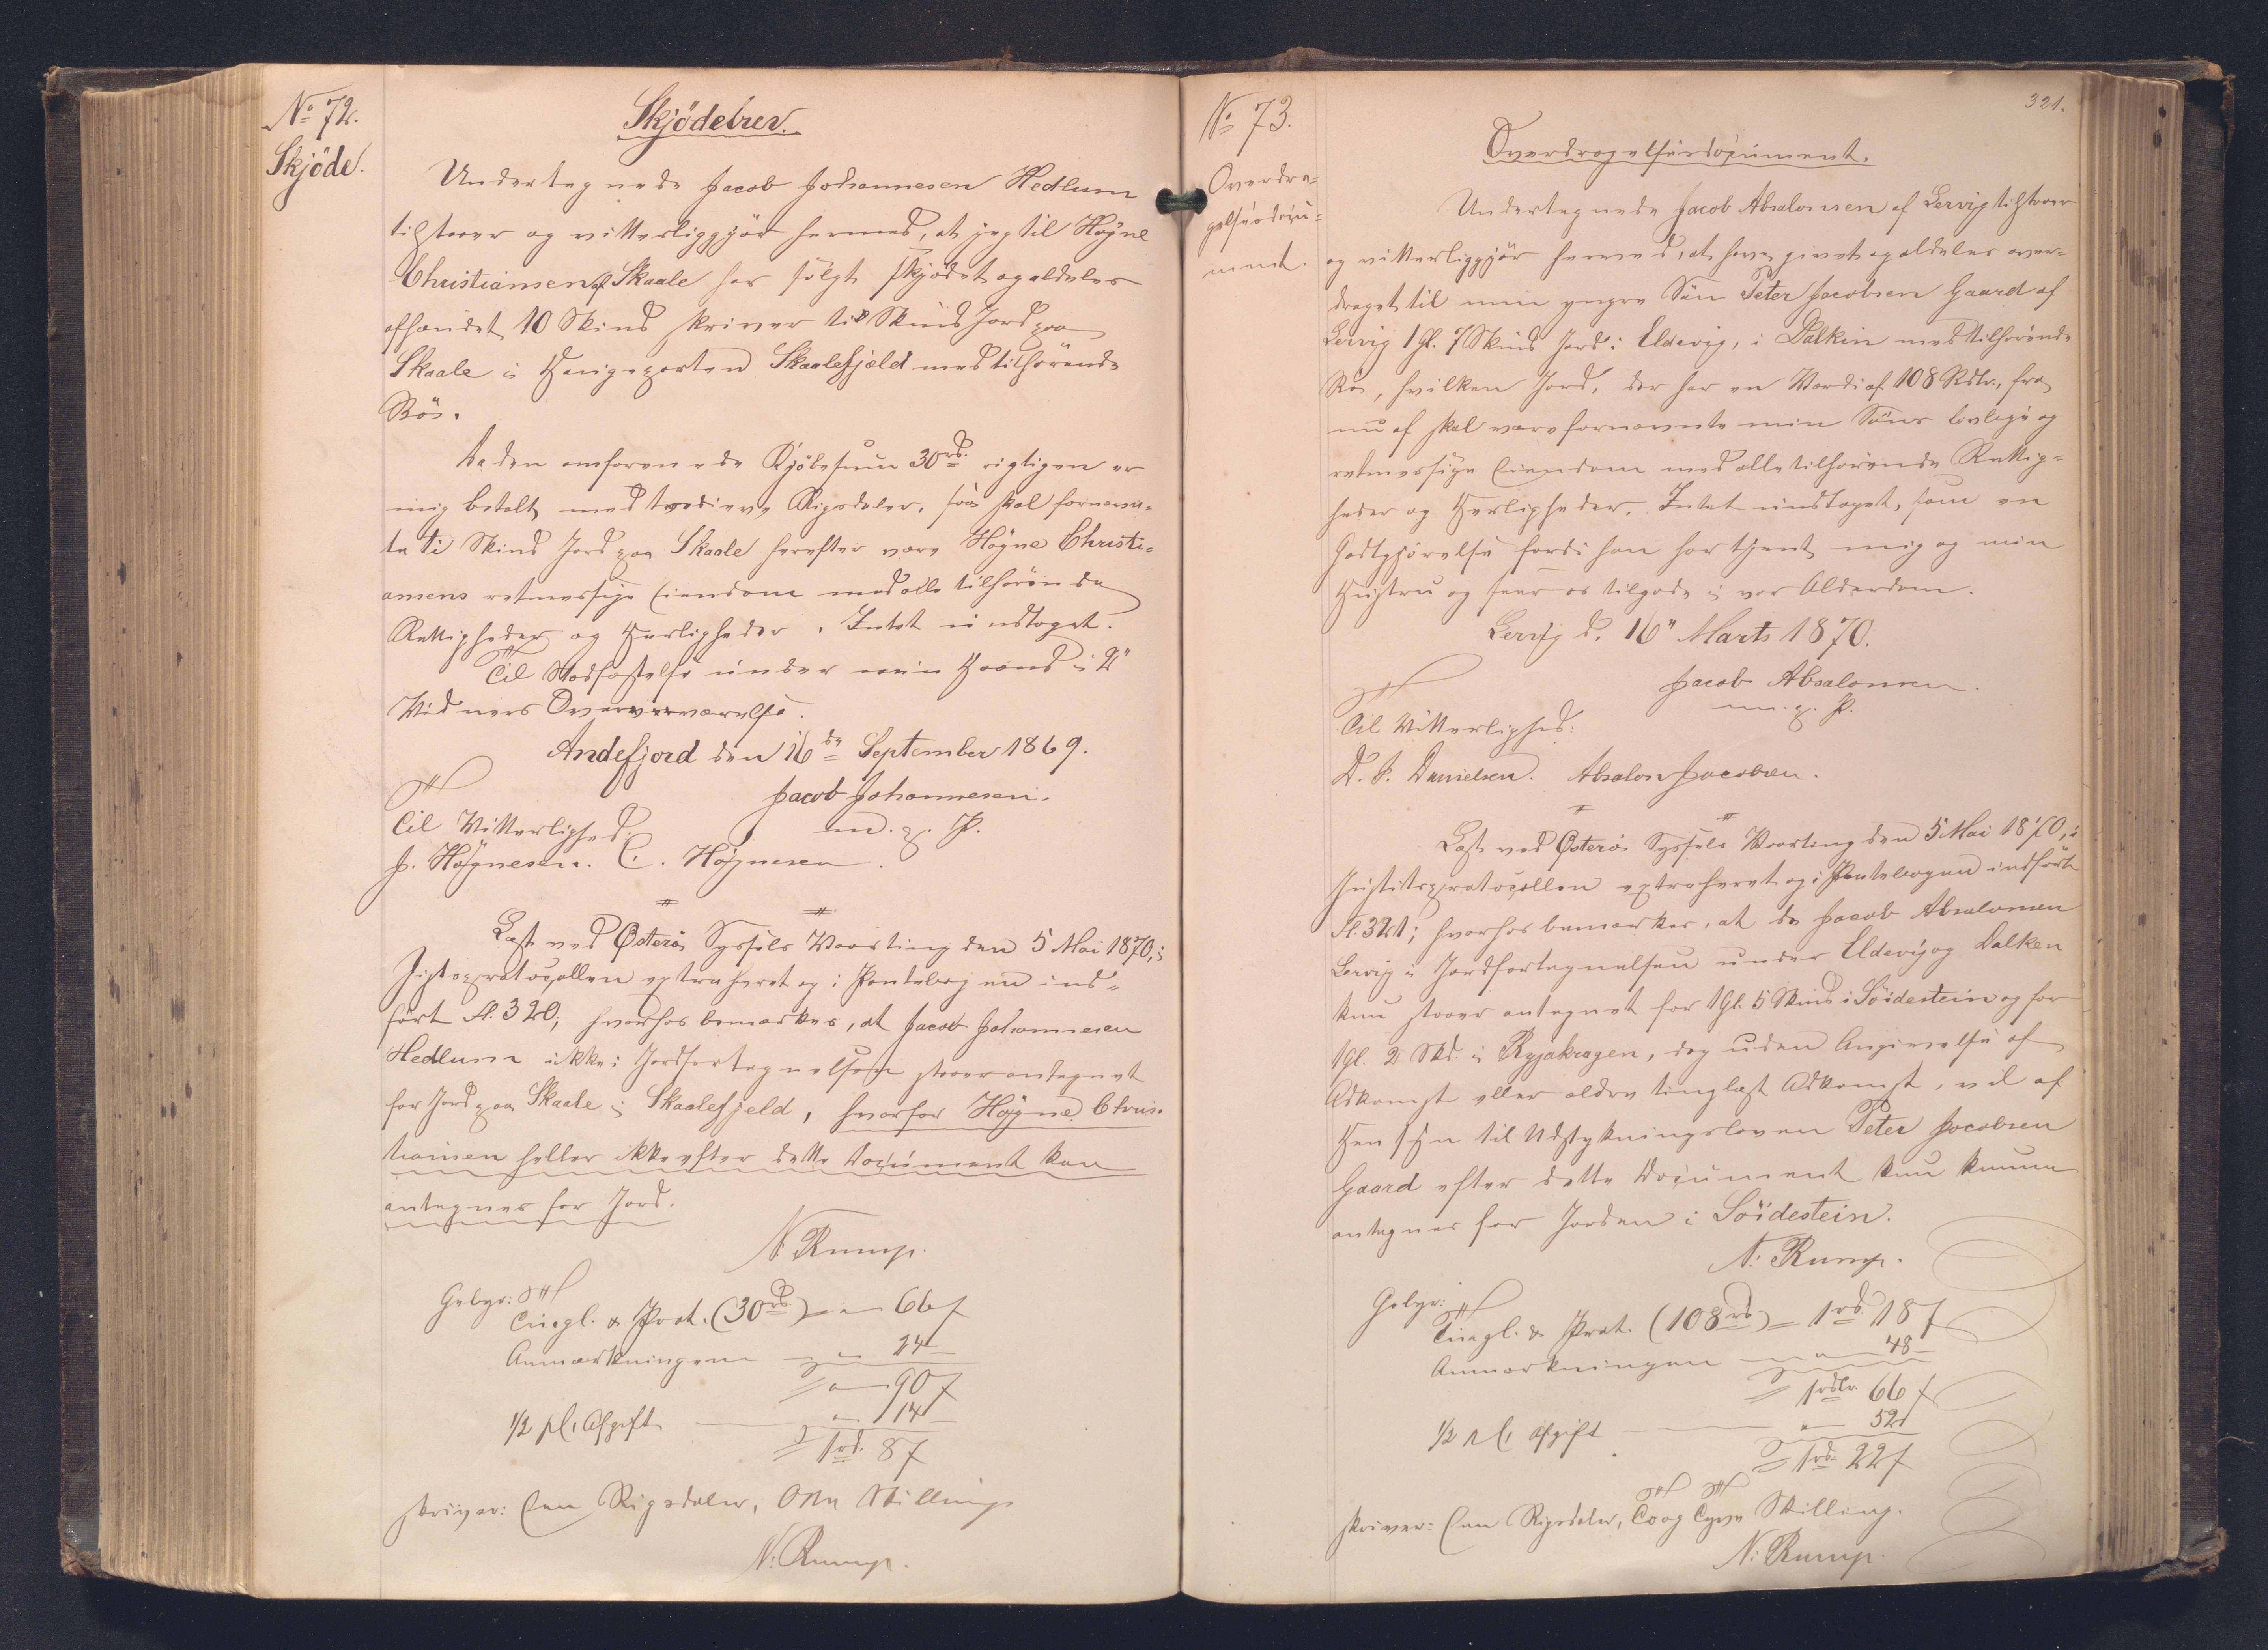 No 72.
Skjöde.
Skjödebrev.
Undertegnede Jacob Johannesen Hedlum
tilstaaer og vitterliggjör hermed, at jeg til Högne
Christiansen af Skaale har solgt skjödet og aldeles
afhændet 10 Skind skriver ti Skind Jord paa
Skaale i Haugeparten Skaalefjeld med tilhörende
Bö.
Da den omforenede Kjöbesum 30rd. rigtigen er
mig betalt med tredieve Rigsdaler, saa skal fornævn-
te ti Skind Jord paa Skaale herefter være Högne Christi-
ansens retmæssige Eiendom med alle tilhörende
Rettigheder og Herligheder. Intet undtaget.
Til Stadfæstelse under min Haand i 2"
Vidners Overværelse.
Andefjord den 16de September 1869.
Jacob Johannesen.
m. p. P.
Til Vitterlighed:
J. Högnesen. C. Högnesen.
Læst ved Österö Syssels Vaarting den 5 Mai 1870, i
Justsprotocollen extraheret og i Pantebogen ind-
fört Fl. 320; hvorhos bemærkes, at Jacob Johannesen
Hedlum ikke i Jordfortegnelsen staaer antegnet
for Jord paa Skaale i Skaalefjeld, hvorfor Högne Chris-
tiansen heller ikke efter dette Document kan
antegnes for Jord.
N. Rump.
Gebyr:
Tingl. & Prot. (30rd.) = " 66 ſ
Anmærkningen " 24
= " 90 ſ
1/2 pCt. Afgift " 14
= 1rd. 8 ſ
skriver: Een Rigsdaler, Otte Skilling
N. Rump.
321.
No 73.
Overdra-
gelsesdocu-
ment.
Overdragelsesdocument.
Undertegnede Jacob Absalonsen af Lervig tilstaaer
og vitterliggjör hermed, at have givet og aldeles over-
draget til min yngre Sön Peter Jacobsen Gaard af
Lervig 1 Gl. 7 Skind Jord i Eldevig, i Dalkin med tilhörende
Bö, hvilken Jord, der har en Værdi af 108 Rdlr., fra
nu af skal være fornævnte min Söns lovlige og
retmæssige Eiendom med alle tilhörende Rettig-
heder og Herligheder. Intet undtaget, som en
Godtgjörelse fordi han har tjent mig og min
Hustru og seer os tilgode i vor Alderdom.
Lervig d. 16" Marts 1870.
Jacob Absalonsen.
m. p. P.
Til Vitterlighed:
D. J. Danielsen. Absalon Jacobsen.
Læst ved Österö Syssels Vaarting den 5 Mai 1870, i
Justitsprotocollen extraheret og i Pantebogen indfört
Fl. 321; hvorhos bemærkes, at da Jacob Absalonsen
Lervig i Jordfortegnelsen under Eldevig og Dalken
kun staaer antegnet for 1 Gl. 5 Skind i Söidestein og for
1 Gl. 2 Skd. i Rygjakragen, dog uden Angivelse af
Adkomst eller ældre tinglæst Adkomst, vil af
Hensyn til Udstykningsloven Peter Jacobsen
Gaard efter dette Document kun kunne
antegnes for Jorden i Söidestein.
N. Rump.
Gebyr:
Tingl. & Prot. (108rd) = 1rd. 18 ſ
Anmærkningen " 48
= 1rdlr. 66 ſ
1/2 pCt. Afgift " 52
= 1rd. 22 ſ
skriver: Een Rigsdaler, To og Tyve Skilling.
N. Rump.